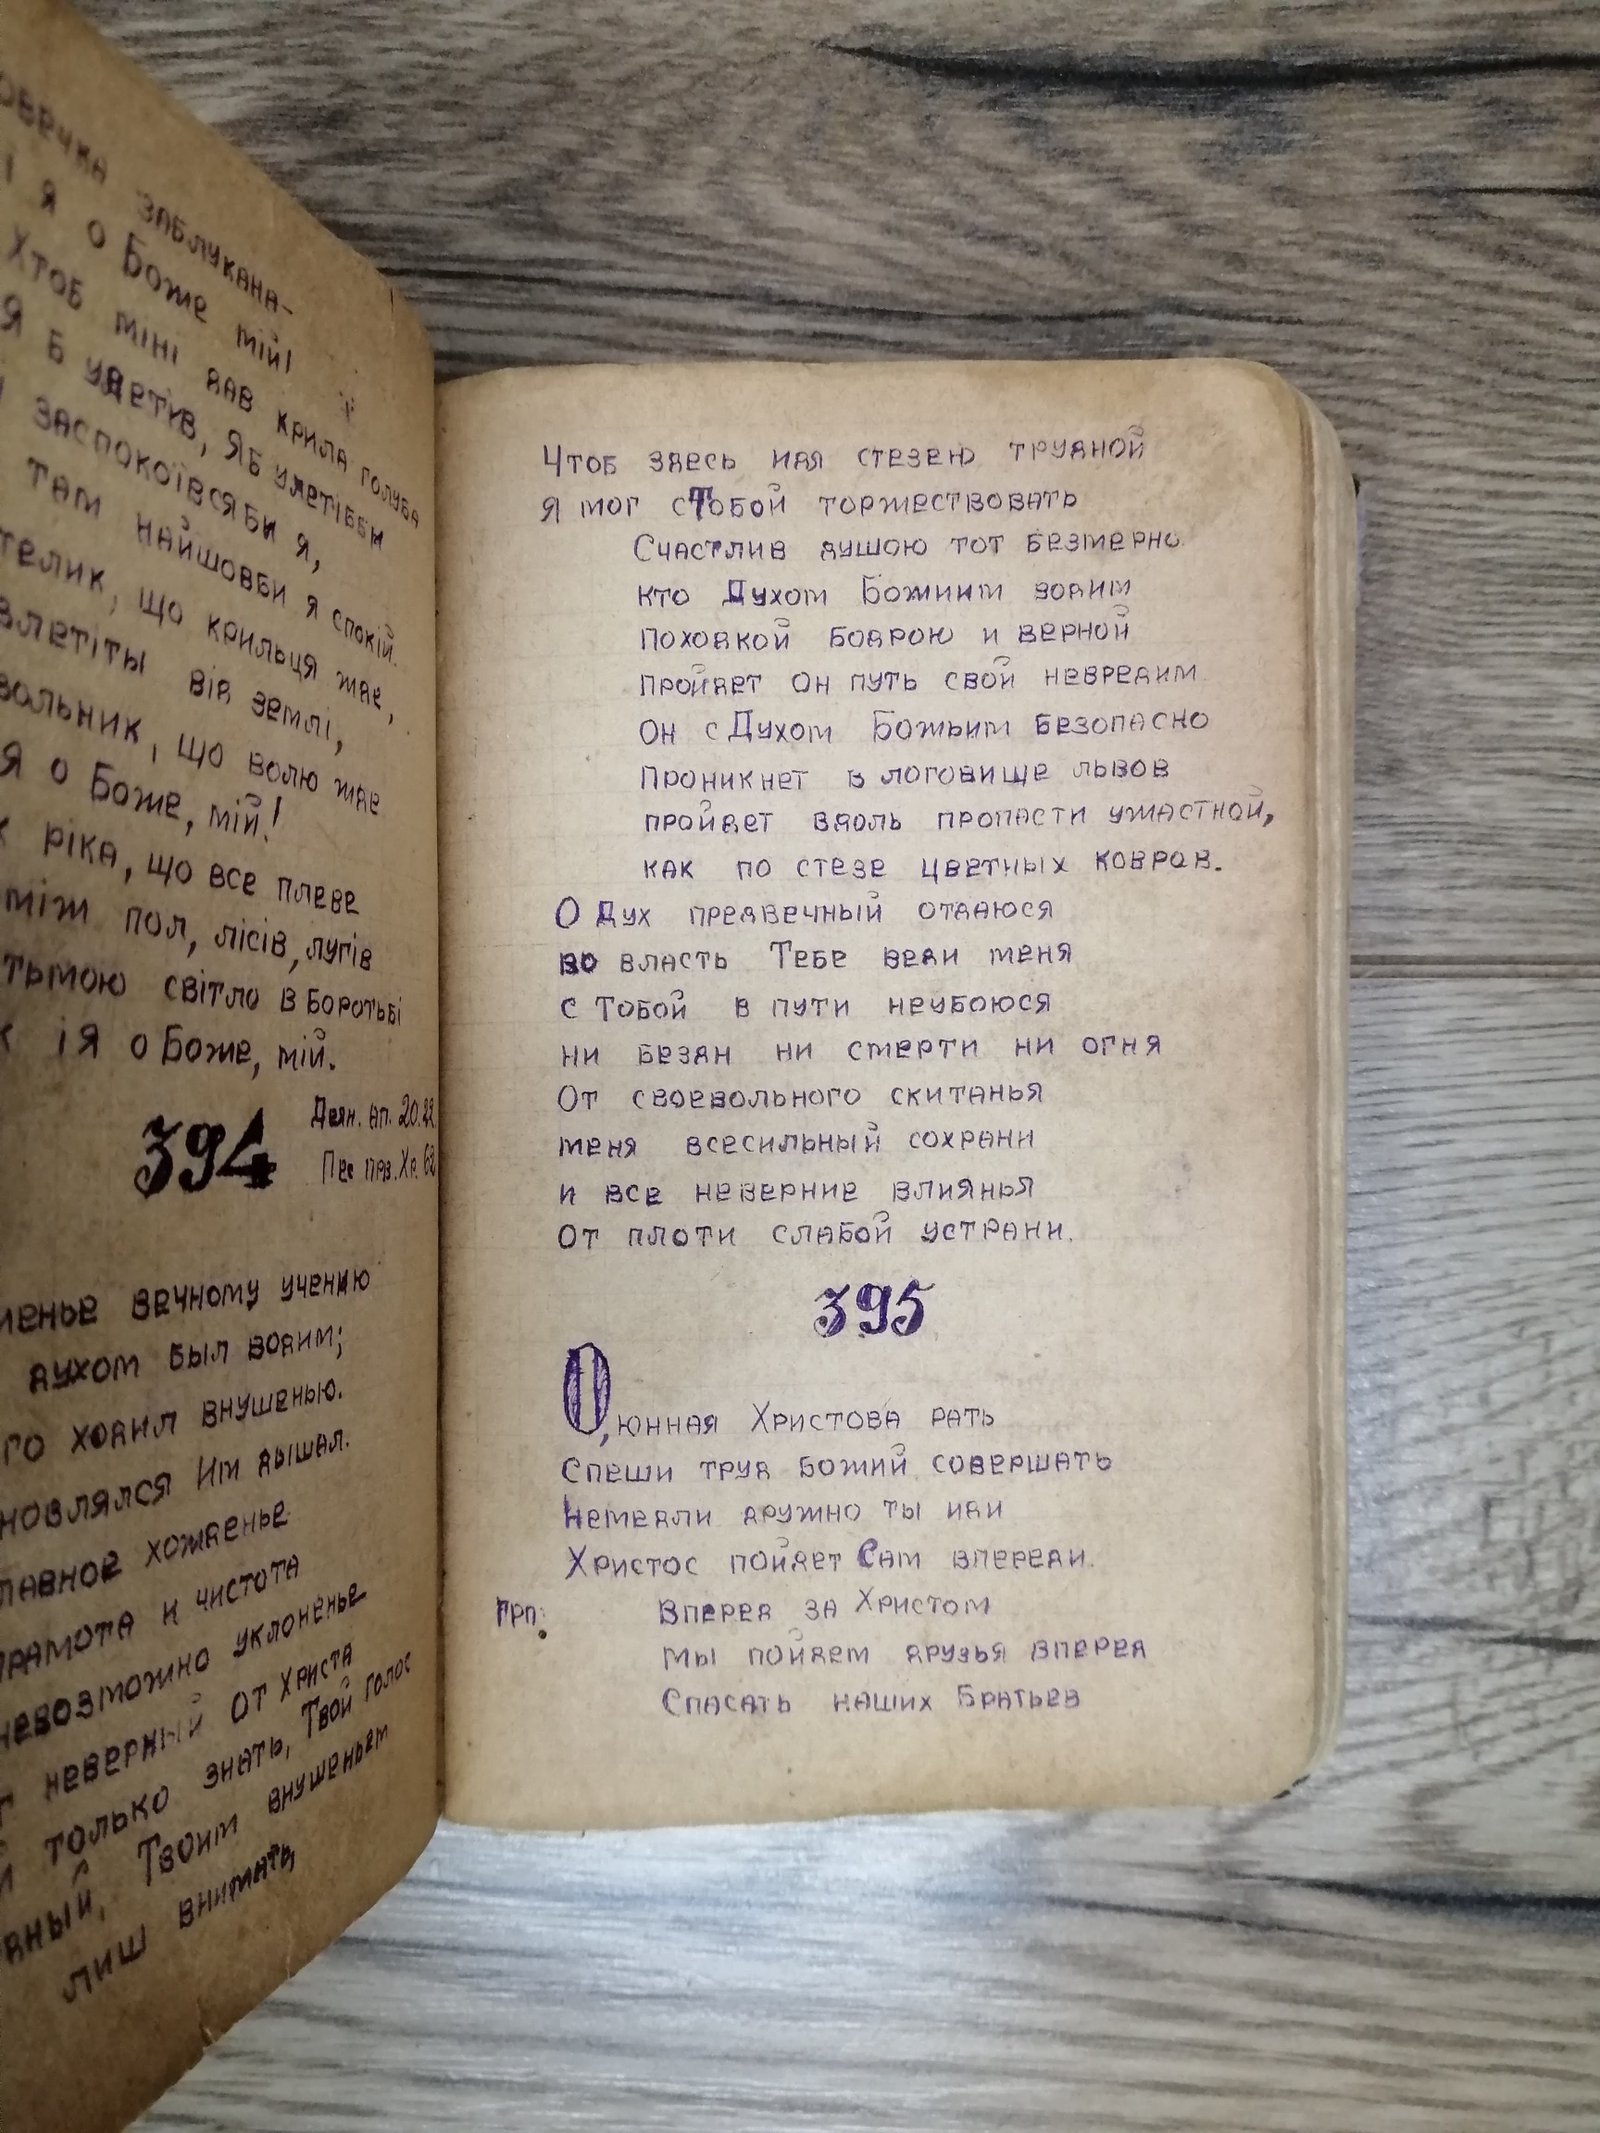 заблукана-
І я о Боже мій!
Хтоб міні дав крила голуба
Я б улетів, Яб улетівби
заспокоївсяби я,
там найшовби я спокій.
що крильця має,
від землі,
що волю має
Я о Боже, мій!
ріка, що все плеве
між пол, лісів, лугів
тьмою світло в боротьбі
і я о Боже, мій.
394
Деян. ап. 20.22
Пес прв. Хр. 62
вечному учению
духом был водим;
ходил внушенью.
Им дышал.
хожденье
и чистота
невозможно уклоненье
неверный от Христа
только знать, Твой голос
Твоим внушеньем
лиш внимать
Чтоб здесь идя стезею трудной
Я мог сТобой торжествовать
Счастлив душою тот безмерно
кто Духом Божиим водим
походкой бодрою и верной
пройдет он путь свой невредим
Он с Духом Божьим безопасно
Проникнет в логовище львов
пройдет вдоль пропасти ужастной,
как по стезе цветных ковров.
О Дух предвечный отдаюся
во власть Тебе веди меня
с Тобой в пути неубоюся
ни бездн ни смерти ни огня
От своевольного скитанья
меня всесильный сохрани
и все неверние влиянья
От плоти слабой устрани.
395
О, юнная Христова рать
Спеши труд Божий совершать
Немедли дружно ты иди
Христос пойдет Сам впереди.
Прп: Вперед за Христом
мы пойдем друзья вперед
Спасать наших Братьев